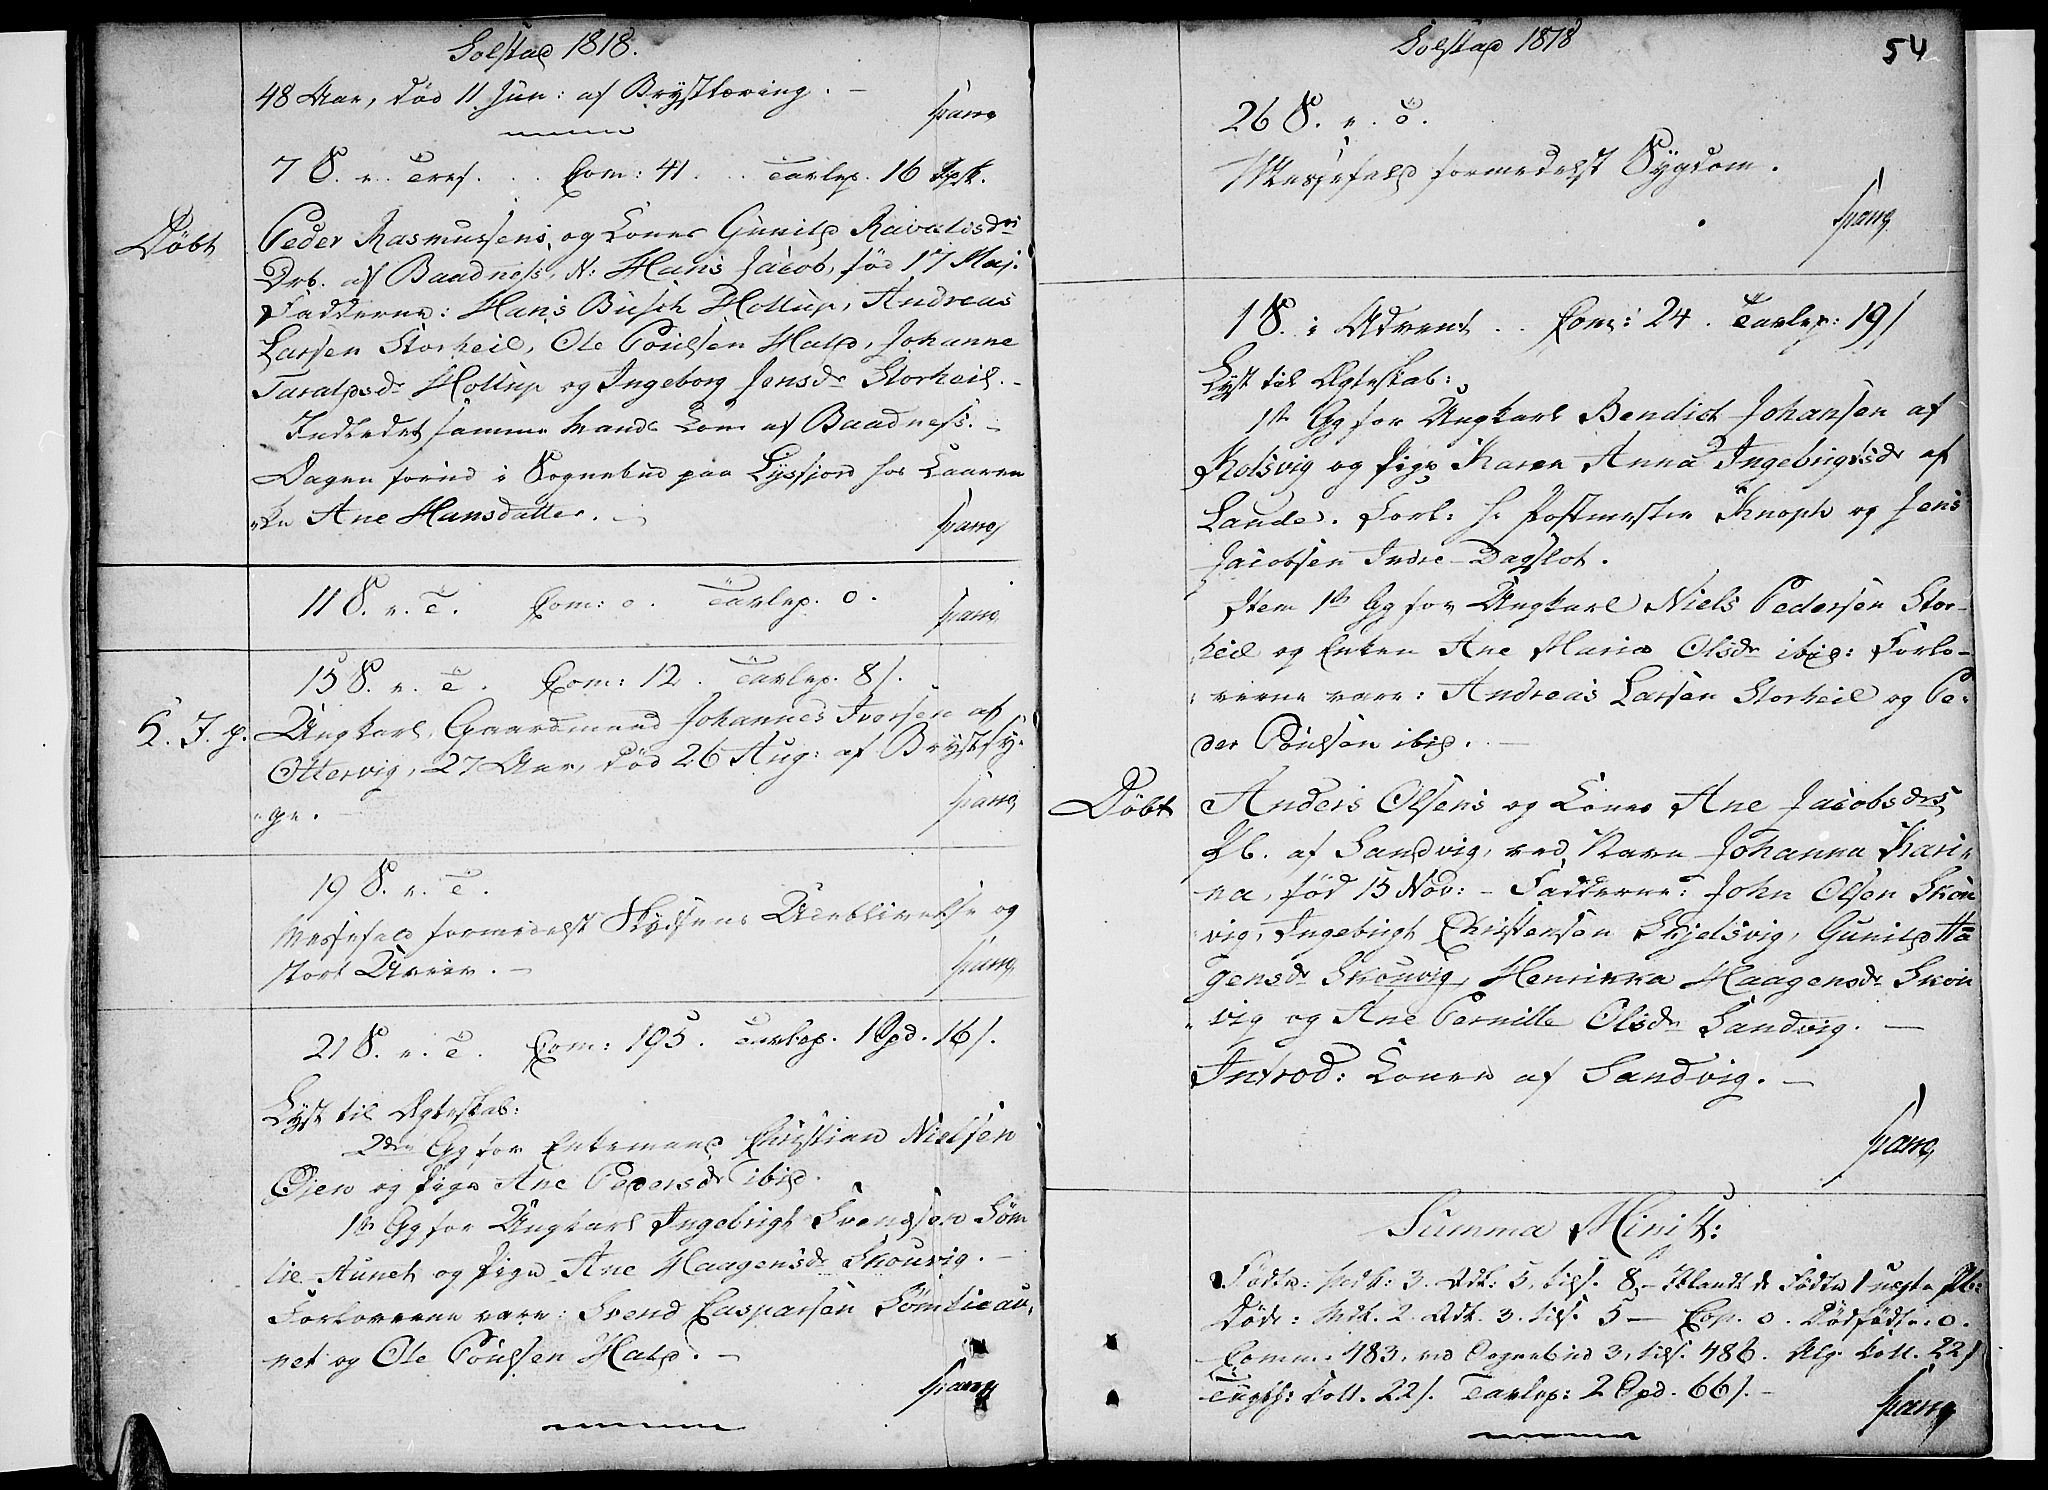 Solstad 1818.
48 Aar, død 11 Jun: af Brysttæring. –
Spang
7 S. e. Tres. . . Com: 41 . . Tavlep. 16
Døbt
Peder Rasmussens og Kones Gunild
Drb. af Baadness, N: Hans Jacob, fød 17 Maj.
Fadderne: Hans Busch Hollup, Andreas
Larsen Storheil, Ole Poulsen Hald, Johanne
Taraldsdr Hollup og Ingeborg Jensdr Storheil. –
Indledet samme Mands Kone af Baadness. –
Dagen forud i Sognebud paa Lysfjord hos Kaaren
Ane Hansdatter. –
Spang
11 S. e. T. Com: 0. Tavlep. 0.
Spang
15 S. e. T. Com: 12. Tavlep. 8 s.
K. J. p.
Ungkarl, Gaardmand Johannes Iversen af
Ottervig, 27 Aar, død 26 Aug: af Brystsy-
ge. –
Spang
19 S. e. T.
Messefald formedelst Skydsens Udeblivelse og
stort Uveir. –
Spang
21 S. e. T. Com: 195. Tavlep. 1 Spd. 16 s.
Lyst til Ægteskab:
2den Gg for Enkemand Christian Nielsen
Øien og Pige Ane Pedersdr ibid.
1ste Gg for Ungkarl Ingebrigt Svendsen Søm
lie Aunet og Pige Ane Haagensdr Skouvig. –
Forloverne vare: Svend Casparsen Sømlieau-
net og Ole Poulsen Hald. –
Spang
Solstad 1818
54
26 S. e. T.
Messefald formedelst Sygdom.
Spang
1 S. i Advent . . Com: 24. Tavlep: 19 s
Lyst til Ægteskab:
1ste Gg for Ungkarl Bendict Johansen af
Kolsvig og Pige Karen Anna Ingebrigtsdr af
Lande. Forl: Hr Postmester Knoph og Jens
Jacobsen Indre-Dagslot.
Item 1ste Gg for Ungkarl Niels Pedersen Stor-
heil og Enken Ane Maria Olsdr ibid: Forlo-
verne vare: Andreas Larsen Storheil og Pe-
der Poulsen ibid. –
Døbt
Anders Olsens og Kones Ane Jacobsdrs
Pb. af Sandvig, ved Navn Johanna Kari-
na, fød 15 Nov: – Fadderne: John Olsen Skou
vig, Ingebrigt Christensen Skjelsvig, Gunild Ha
gensdr Skouvig, Henrikka Haagensdr Skou
vig og Ane Pernille Olsdr Sandvig. –
Introd: Konen af Sandvig. –
Spang
Summa Minist:
Fødte: Mdk: 3. Qdk: 5, tils. 8 – Iblandt de Fødte 1 uægte Pb:
Døde: Mdk. 2. Qdk. 3. tils. 5 – Cop. 0. Dødfødte: 0.
Comm: 483, ved Sognebud 3, tils. 486. Alg. Coll. 22 s
Tugth: Coll. 22 s. Tavlep: 2 Spd. 66 s. –
Spang